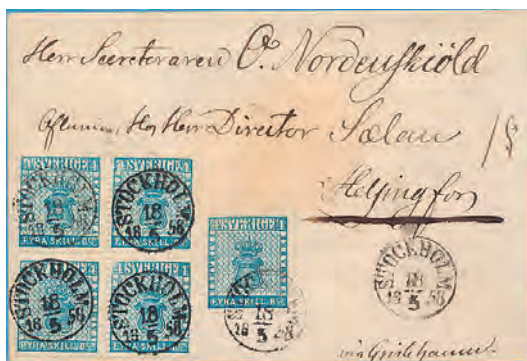 Herr Secreteraren O. Nordenskiöld
Hos Herr Director Sælan
Helsingfors
SVERIGE
FYRA SKILL. Bco
STOCKHOLM
18
18 5 58
SVERIGE
FYRA SKILL. Bco
STOCKHOLM
18
18 5 58
SVERIGE
FYRA SKILL. Bco
STOCKHOLM
18
18 5 58
SVERIGE
FYRA SKILL. Bco
STOCKHOLM
18
18 5 58
SVERIGE
FYRA SKILL. Bco
STOCKHOLM
18
18 5 58
STOCKHOLM
18
18 5 58
via Grislehamn